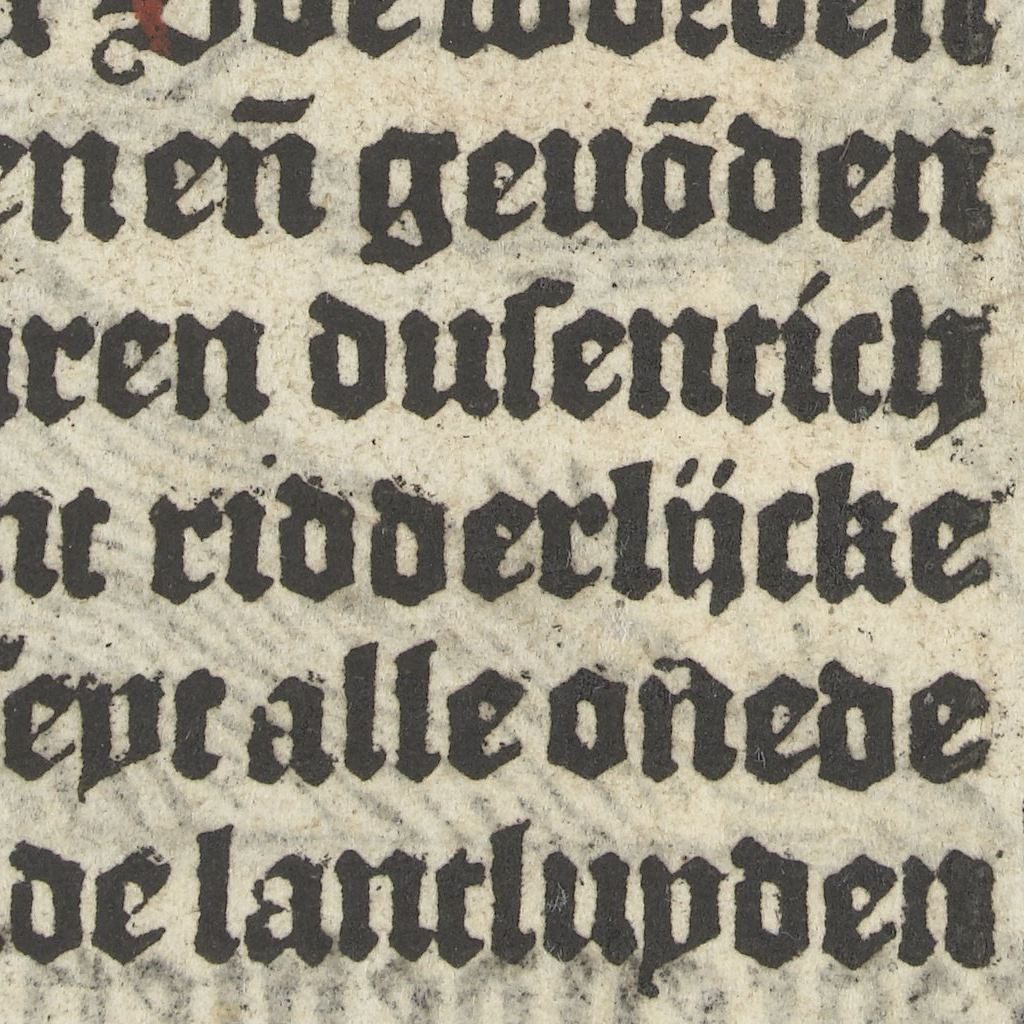 de worden
en eñ geuōden
ren dusentich
nt ridderlijcke
sept alle onede
de lantluyden